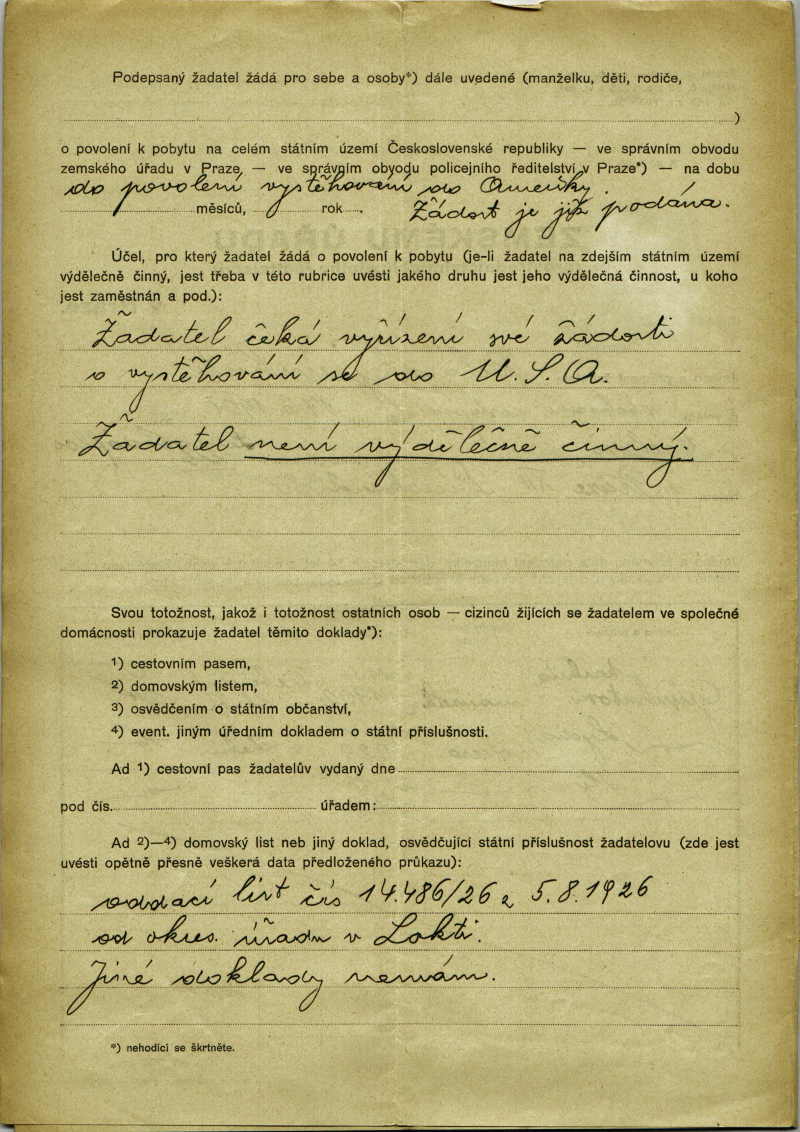 Podepsaný žadatel žádá pro sebe a osoby*) dále uvedené (manželku, děti, rodiče,
)
o povolení k pobytu na celém státním území Československé republiky — ve správním obvodu
zemského úřadu v Praze — ve správním obvodu policejního ředitelství v Praze*) — na dobu
do povolení vystěhování do Ameriky.
měsíců, rok Žádost je již podána.
Účel, pro který žadatel žádá o povolení k pobytu (je-li žadatel na zdejším státním území
výdělečně činný, jest třeba v této rubrice uvésti jakého druhu jest jeho výdělečná činnost, u koho
jest zaměstnán a pod.):
Žadatel čeká vyřízení své žádosti
o vystěhování se do U.S.A.
Žadatel není výdělečně činný.
Svou totožnost, jakož i totožnost ostatních osob — cizinců žijících se žadatelem ve společné
domácnosti prokazuje žadatel těmito doklady*):
1) cestovním pasem,
2) domovským listem,
3) osvědčením o státním občanství,
4) event. jiným úředním dokladem o státní příslušnosti.
Ad 1) cestovní pas žadatelův vydaný dne
pod čís. úřadem:
Ad 2)—4) domovský list neb jiný doklad, osvědčující státní příslušnost žadatelovu (zde jest
uvésti opětně přesně veškerá data předloženého průkazu):
oddací list čís 14.486/26 z 5.8.1926
od okres. úřadu v Lokti.
Jiné doklady nemám.
*) nehodící se škrtněte.